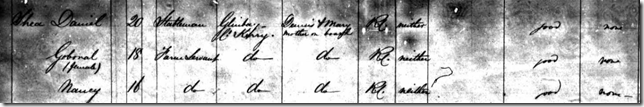 Shea Daniel 20 Ploughman Glenbeigh Co Kerry Daniel & Mary mother on board R.C. neither good none
Gobonal (female) 18 Farm Servant do do R.C. neither good none
Nancy 16 do do do R.C. neither? good none